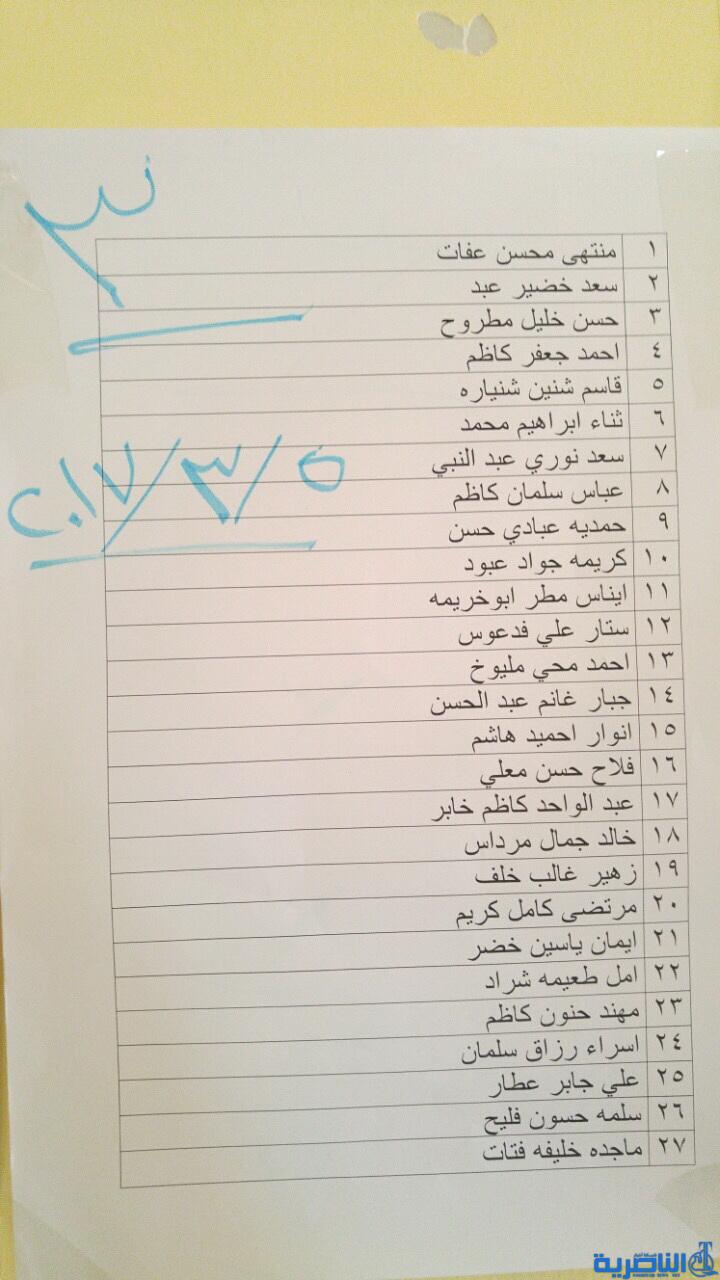 ٣
١ منتهى محسن عفات
٢ سعد خضير عبد
٣ حسن خليل مطروح
٤ احمد جعفر كاظم
٥ قاسم شنين شنياره
٦ ثناء ابراهيم محمد
٧ سعد نوري عبد النبي
٨ عباس سلمان كاظم
٩ حمديه عبادي حسن
١٠ كريمه جواد عبود
١١ ايناس مطر ابوخريمه
١٢ ستار علي فدعوس
١٣ احمد محي مليوخ
١٤ جبار غانم عبد الحسن
١٥ انوار احميد هاشم
١٦ فلاح حسن معلي
١٧ عبد الواحد كاظم خابر
١٨ خالد جمال مرداس
١٩ زهير غالب خلف
٢٠ مرتضى كامل كريم
٢١ ايمان ياسين خضر
٢٢ امل طعيمه شراد
٢٣ مهند حنون كاظم
٢٤ اسراء رزاق سلمان
٢٥ علي جابر عطار
٢٦ سلمه حسون فليح
٢٧ ماجده خليفه فتات
٥/٣/٢٠١٧
الناصرية